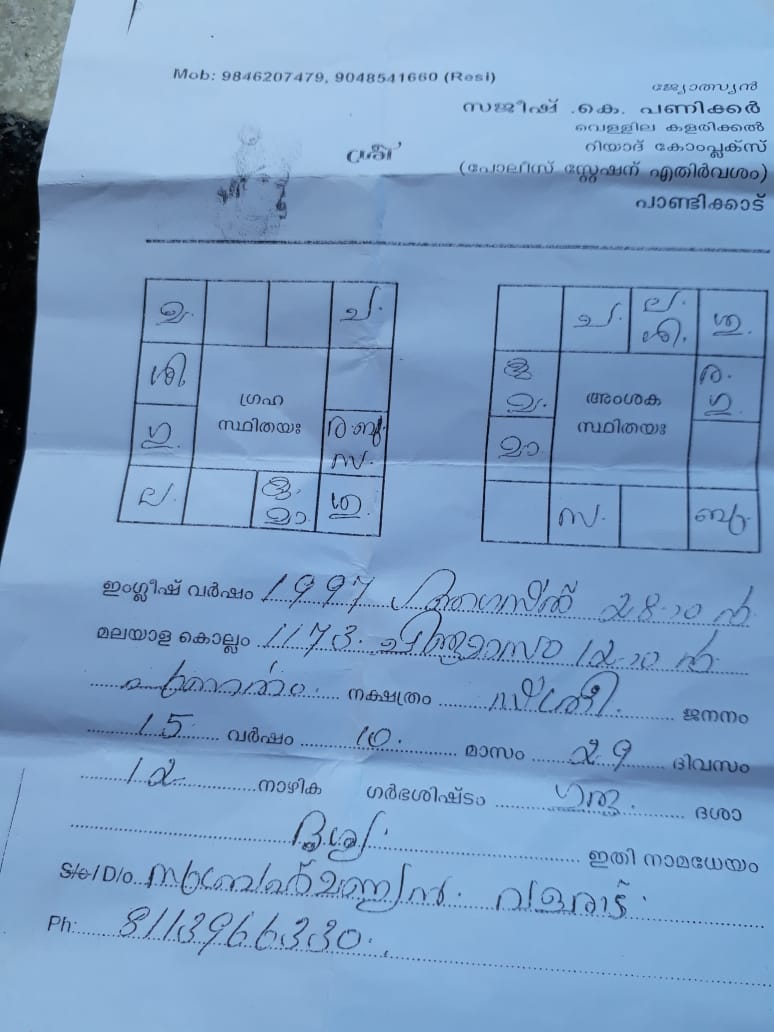 Mob: 9846207479, 9048541660 (Resi)
ജ്യോത്സ്യൻ
സജീഷ് .കെ. പണിക്കർ
വെള്ളില കളരിക്കൽ
റിയാദ് കോംപ്ലക്സ്
(പോലീസ് സ്റ്റേഷന് എതിർവശം)
പാണ്ടിക്കാട്
മ. ച.
ശി
ഗു
ഗ്രഹ
സ്ഥിതയഃ
ര.ബു
സ.
ല. മാ. ശു.
ച. ല.
ശി. ശു.
ര.
ഗു
അംശക
സ്ഥിതയഃ
മാ
സ. ബു.
ഇംഗ്ലീഷ് വർഷം 1997 28-ാo ൻ
മലയാള കൊല്ലം 1173 ചിങ്ങമാസം 12-ാo ൻ
നക്ഷത്രം സ്ത്രീ ജനനം
15 വർഷം 10 മാസം 29 ദിവസം
12 നാഴിക ഗർഭശിഷ്ടം ഗുരു ദശാ
ഇതി നാമധേയം
S/o/D/o
Ph: 8113966330